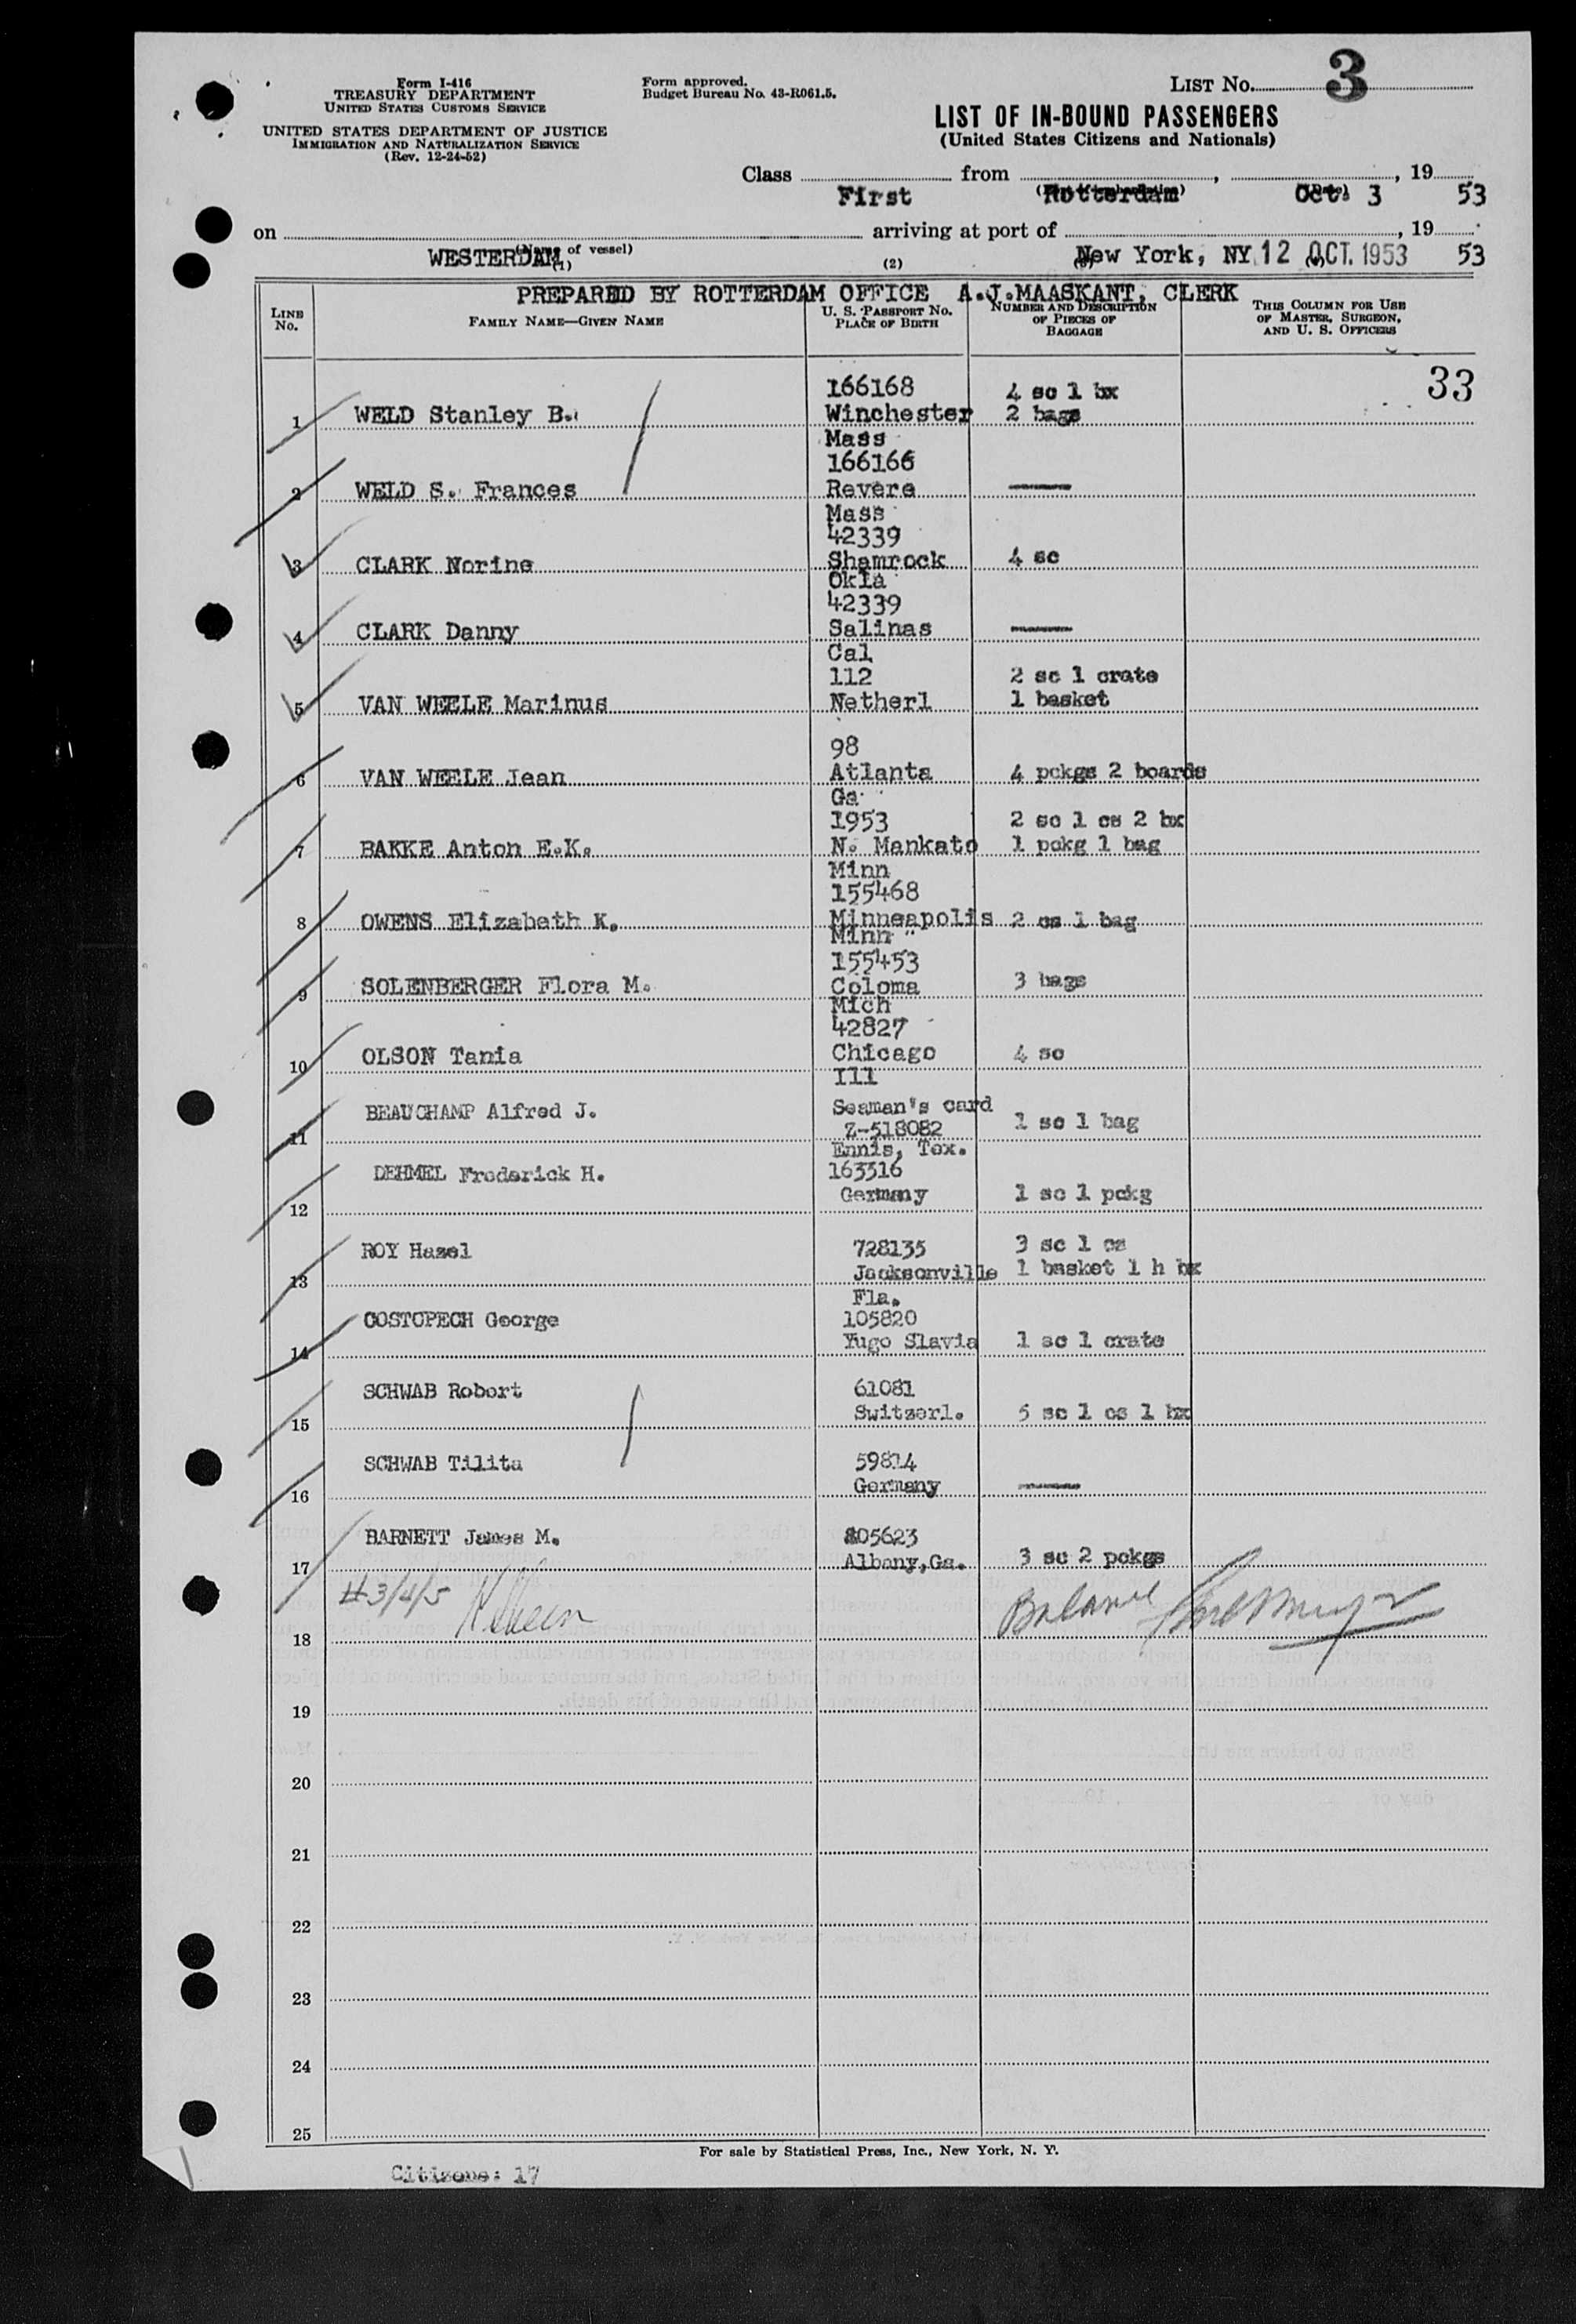 Form I-416
TREASURY DEPARTMENT
UNITED STATES CUSTOMS SERVICE
UNITED STATES DEPARTMENT OF JUSTICE
IMMIGRATION AND NATURALIZATION SERVICE
(Rev. 12-24-52)
Form approved.
Budget Bureau No. 43-R061.5.
LIST No. 3
LIST OF IN-BOUND PASSENGERS
(United States Citizens and Nationals)
Class First from Rotterdam, Oct. 3, 19 53
on WESTERDAM arriving at port of New York, NY 12 OCT. 1953, 19 53
(Name of vessel)
(1) (2)
PREPARED BY ROTTERDAM OFFICE A.J.MAASKANT, CLERK
LINE No.
FAMILY NAME—GIVEN NAME
U. S. PASSPORT No.
PLACE OF BIRTH
NUMBER AND DESCRIPTION
OF PIECES OF
BAGGAGE
THIS COLUMN FOR USE
OF MASTER, SURGEON,
AND U. S. OFFICERS
33
166168 4 sc 1 bx
1 WELD Stanley B. Winchester 2 bags
Mass
166166
2 WELD S. Frances Revere
Mass
42339
3 CLARK Norine Shamrock 4 sc
Okla
42339
4 CLARK Danny Salinas
Cal
112 2 sc 1 crate
5 VAN WEELE Marinus Netherl 1 basket
98
6 VAN WEELE Jean Atlanta 4 pckgs 2 boards
Ga
1953 2 sc 1 cs 2 bx
7 BAKKE Anton E.K. N. Mankato 1 pckg 1 bag
Minn
155468
8 OWENS Elizabeth K. Minneapolis 2 cs 1 bag
Minn
155453
9 SOLENBERGER Flora M. Coloma 3 bags
Mich
42827
10 OLSON Tania Chicago 4 sc
Ill
BEAUCHAMP Alfred J. Seaman's card
11 Z-518082 1 sc 1 bag
Ennis, Tex.
DEHMEL Frederick H. 163316
12 Germany 1 sc 1 pckg
ROY Hazel 728135 3 sc 1 cs
13 Jacksonville 1 basket 1 h bx
Fla.
COSTOPECH George 105820
14 Yugo Slavia 1 sc 1 crate
SCHWAB Robert 61081
15 Switzerl. 5 sc 1 cs 1 bx
SCHWAB Tilita 59814
16 Germany
BARNETT James M. 805623
17 Albany,Ga. 3 sc 2 pckgs
#3/4/5 Balance
18
19
20
21
22
23
24
25
For sale by Statistical Press, Inc., New York, N. Y.
Citizens: 17